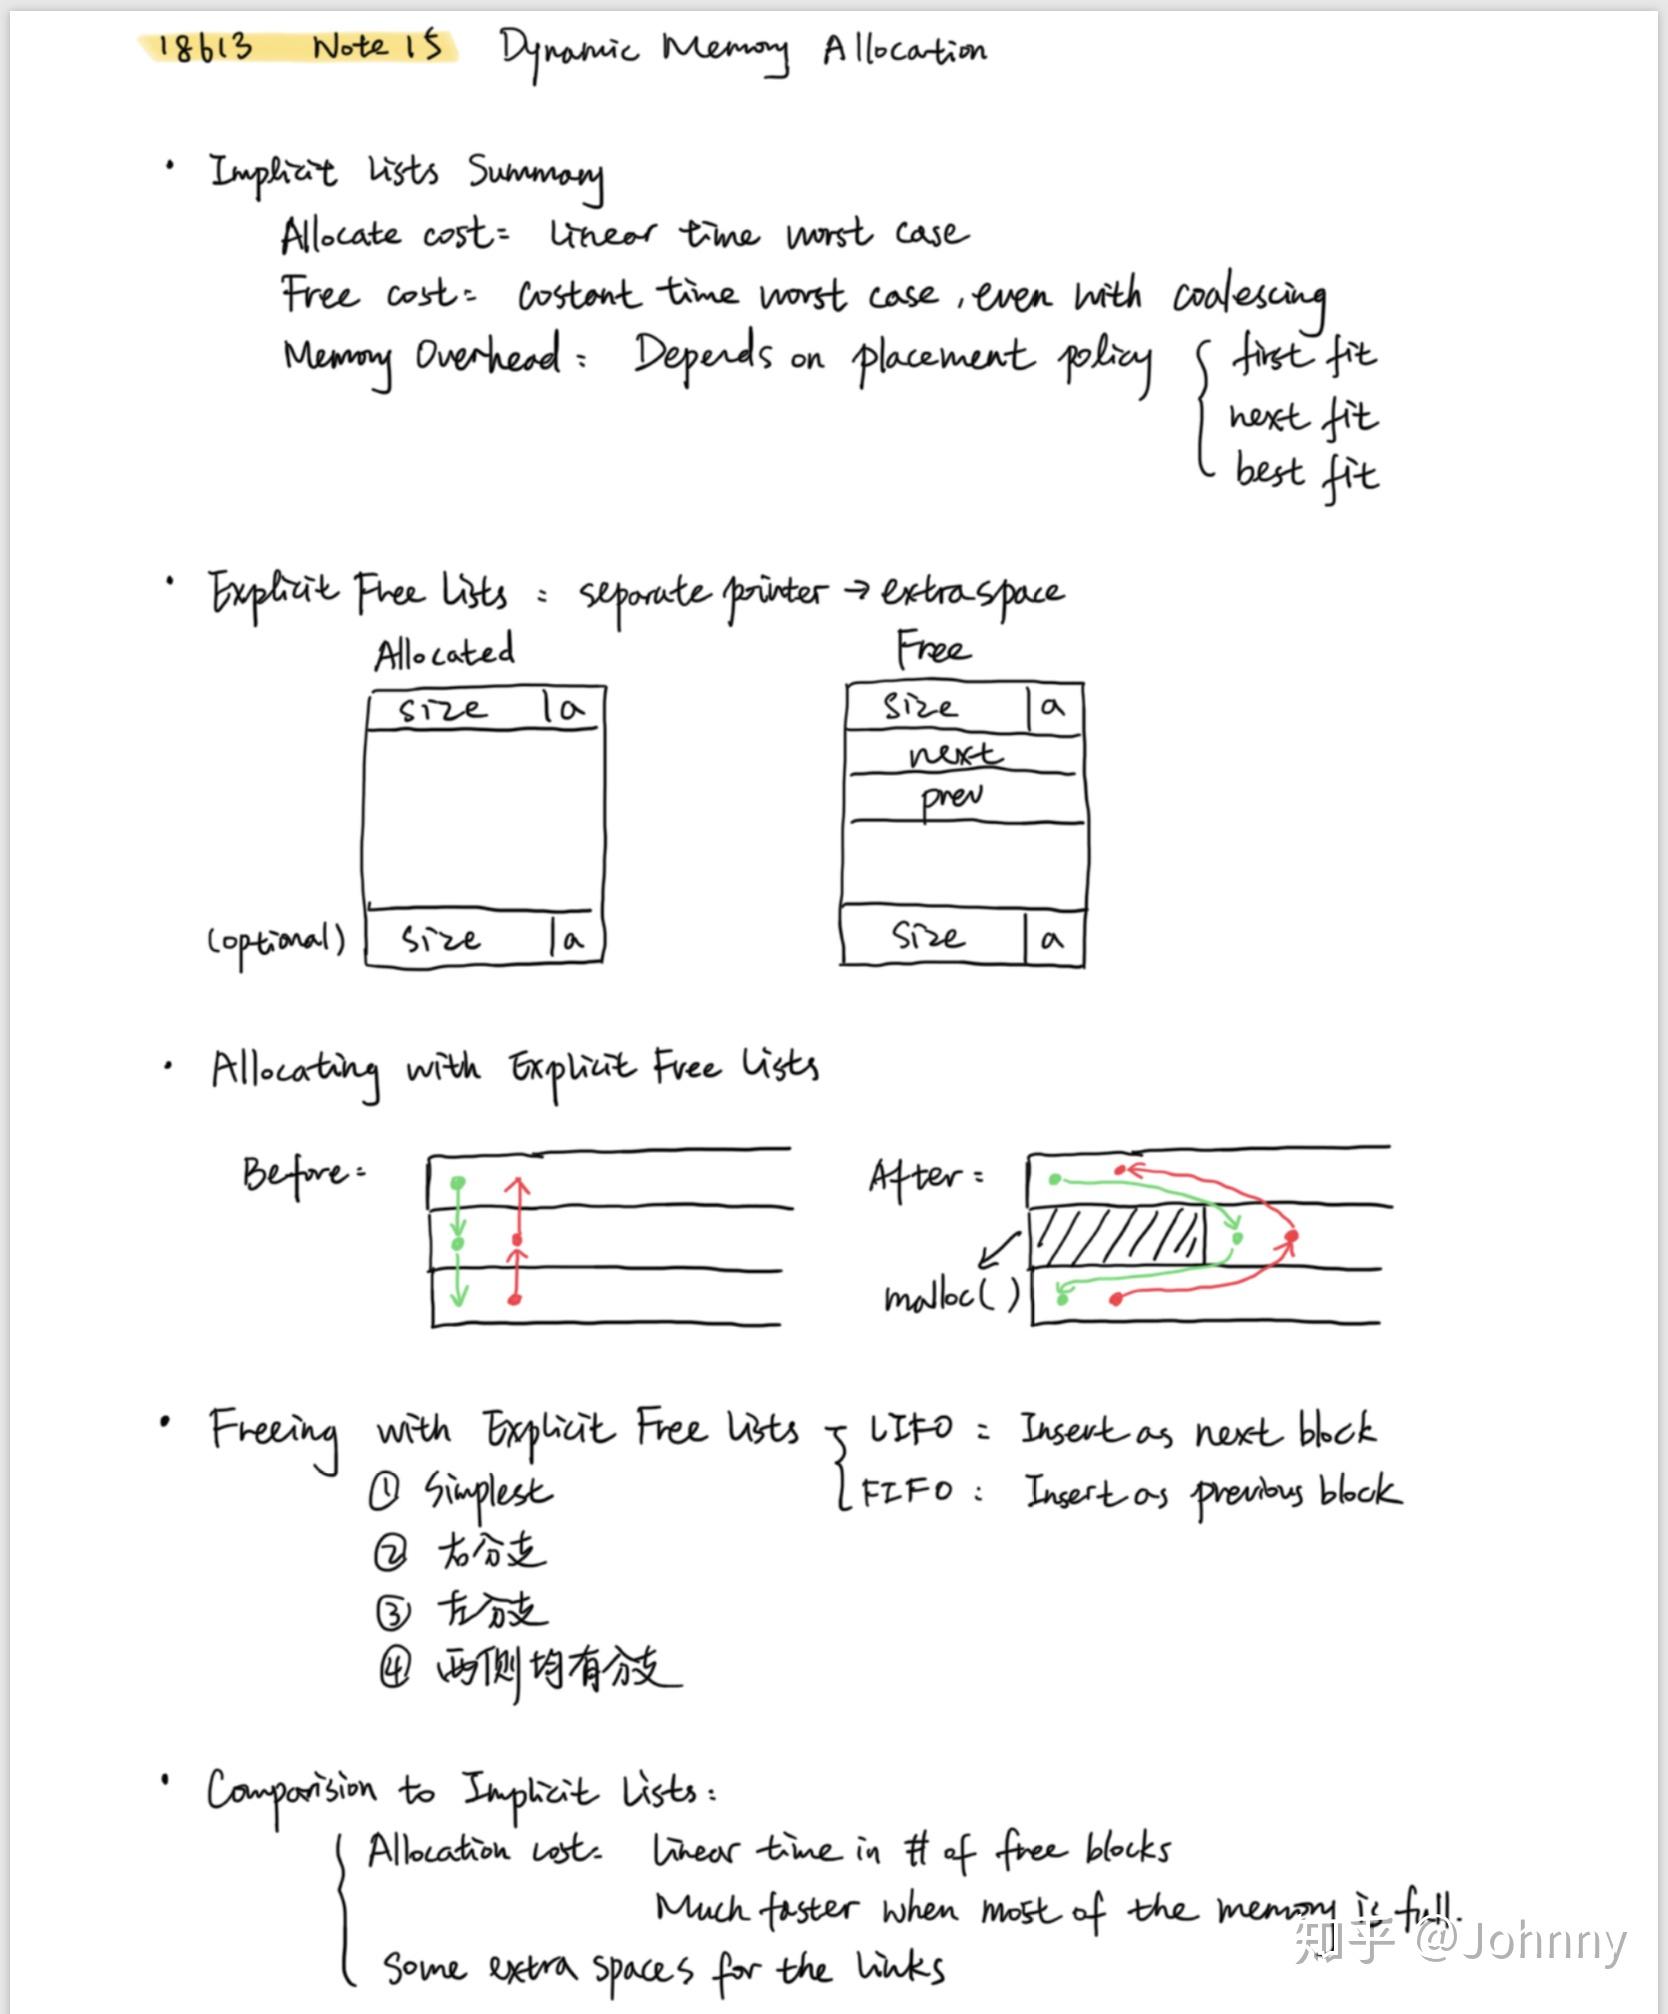 18613 Note 15 Dynamic Memory Allocation
• Implicit Lists Summary
Allocate cost: Linear time worst case
Free cost: costant time worst case, even with coalescing
Memory Overhead: Depends on placement policy { first fit
next fit
best fit
• Explicit Free Lists: separate pointer → extra space
Allocated Free
size | a
size | a
next
prev
(optional) size | a
size | a
• Allocating with Explicit Free Lists
Before: After:
malloc()
• Freeing with Explicit Free Lists { LIFO: Insert as next block
FIFO: Insert as previous block
① Simplest
② 右分支
③ 左分支
④ 两侧均有分支
• Comparision to Implicit Lists:
Allocation cost: Linear time in # of free blocks
Much faster when most of the memory is full.
Some extra spaces for the links
知乎 @Johnny